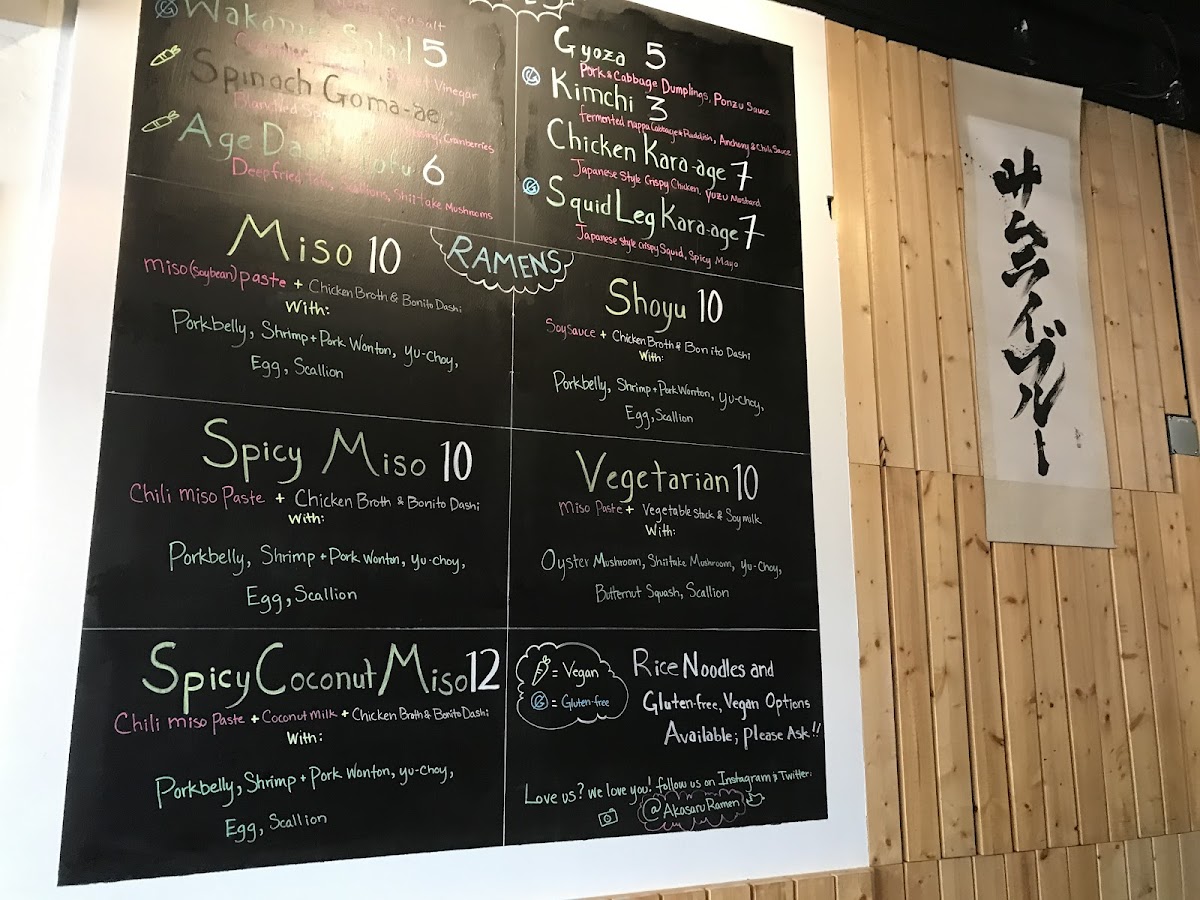 Sea Salt
Wakame Salad 5
Vinegar
Spinach Goma-ae
Cranberries
Age Dashi Tofu 6
Deepfried Tofu, Scallions, Shiitake Mushrooms
Gyoza 5
Pork & Cabbage Dumplings, Ponzu Sauce
Kimchi 3
fermented nappa Cabbage & Raddish, Anchovy & Chili Sauce
Chicken Kara-age 7
Japanese Style Crispy Chicken, Yuzu Mustard
Squid Leg Kara-age 7
Japanese style crispy Squid, Spicy Mayo
RAMENS
Miso 10
miso (soybean) paste + Chicken Broth & Bonito Dashi
With:
Porkbelly, Shrimp + Pork Wonton, Yu-Choy,
Egg, Scallion
Shoyu 10
Soysauce + Chicken Broth & Bonito Dashi
With:
Porkbelly, Shrimp + Pork Wonton, Yu-Choy,
Egg, Scallion
Spicy Miso 10
Chili miso Paste + Chicken Broth & Bonito Dashi
With:
Porkbelly, Shrimp + Pork Wonton, Yu-Choy,
Egg, Scallion
Vegetarian 10
Miso Paste + Vegetable stock & Soymilk
With:
Oyster Mushroom, Shiitake Mushroom, Yu-Choy,
Butternut Squash, Scallion
Spicy Coconut Miso 12
Chili miso Paste + Coconut Milk + Chicken Broth & Bonito Dashi
With:
Porkbelly, Shrimp + Pork Wonton, Yu-Choy,
Egg, Scallion
= Vegan
G = Gluten-free
Rice Noodles and
Gluten-free, Vegan Options
Available; please Ask!!
Love us? we love you! follow us on Instagram & Twitter:
@AkasaruRamen
サムライブルー